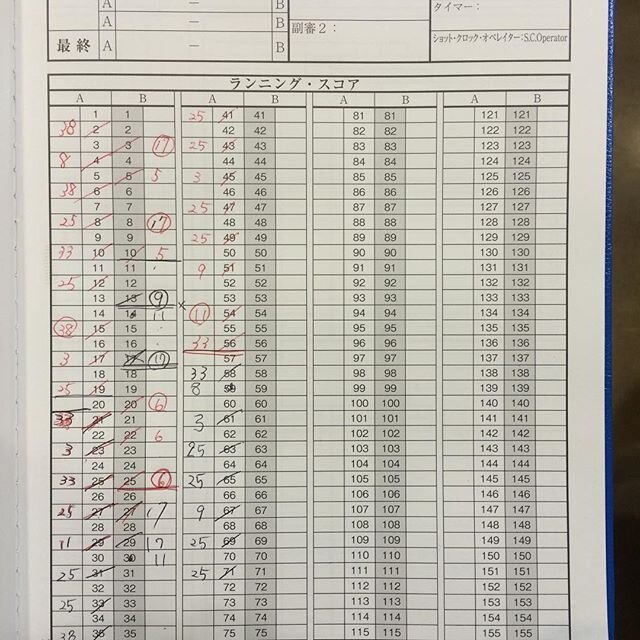 A － B
A － B
最終 A － B
副審２：
タイマー：
ショット・クロック・オペレイター：S.C.Operator
ランニング・スコア
A B A B A B A B
1 1 25 41 41 81 81 121 121
38 2 2 42 42 82 82 122 122
3 3 17 25 43 43 83 83 123 123
8 4 4 44 44 84 84 124 124
5 5 5 3 45 45 85 85 125 125
38 6 6 46 46 86 86 126 126
7 7 25 47 47 87 87 127 127
25 8 8 17 48 48 88 88 128 128
9 9 25 49 49 89 89 129 129
33 10 10 5 50 50 90 90 130 130
11 11 9 51 51 91 91 131 131
25 12 12 52 52 92 92 132 132
13 13 9 × 53 53 93 93 133 133
14 14 11 11 54 54 94 94 134 134
38 15 15 55 55 95 95 135 135
16 16 33 56 56 96 96 136 136
3 17 17 17 57 57 97 97 137 137
18 18 33 58 58 98 98 138 138
25 19 19 8 59 59 99 99 139 139
20 20 6 60 60 100 100 140 140
33 21 21 3 61 61 101 101 141 141
22 22 6 62 62 102 102 142 142
3 23 23 25 63 63 103 103 143 143
24 24 64 64 104 104 144 144
33 25 25 6 25 65 65 105 105 145 145
26 26 66 66 106 106 146 146
25 27 27 17 9 67 67 107 107 147 147
28 28 68 68 108 108 148 148
11 29 29 17 25 69 69 109 109 149 149
30 30 11 70 70 110 110 150 150
25 31 31 25 71 71 111 111 151 151
32 32 72 72 112 112 152 152
25 33 33 73 73 113 113 153 153
34 34 74 74 114 114 154 154
38 35 35 75 75 115 115 155 155